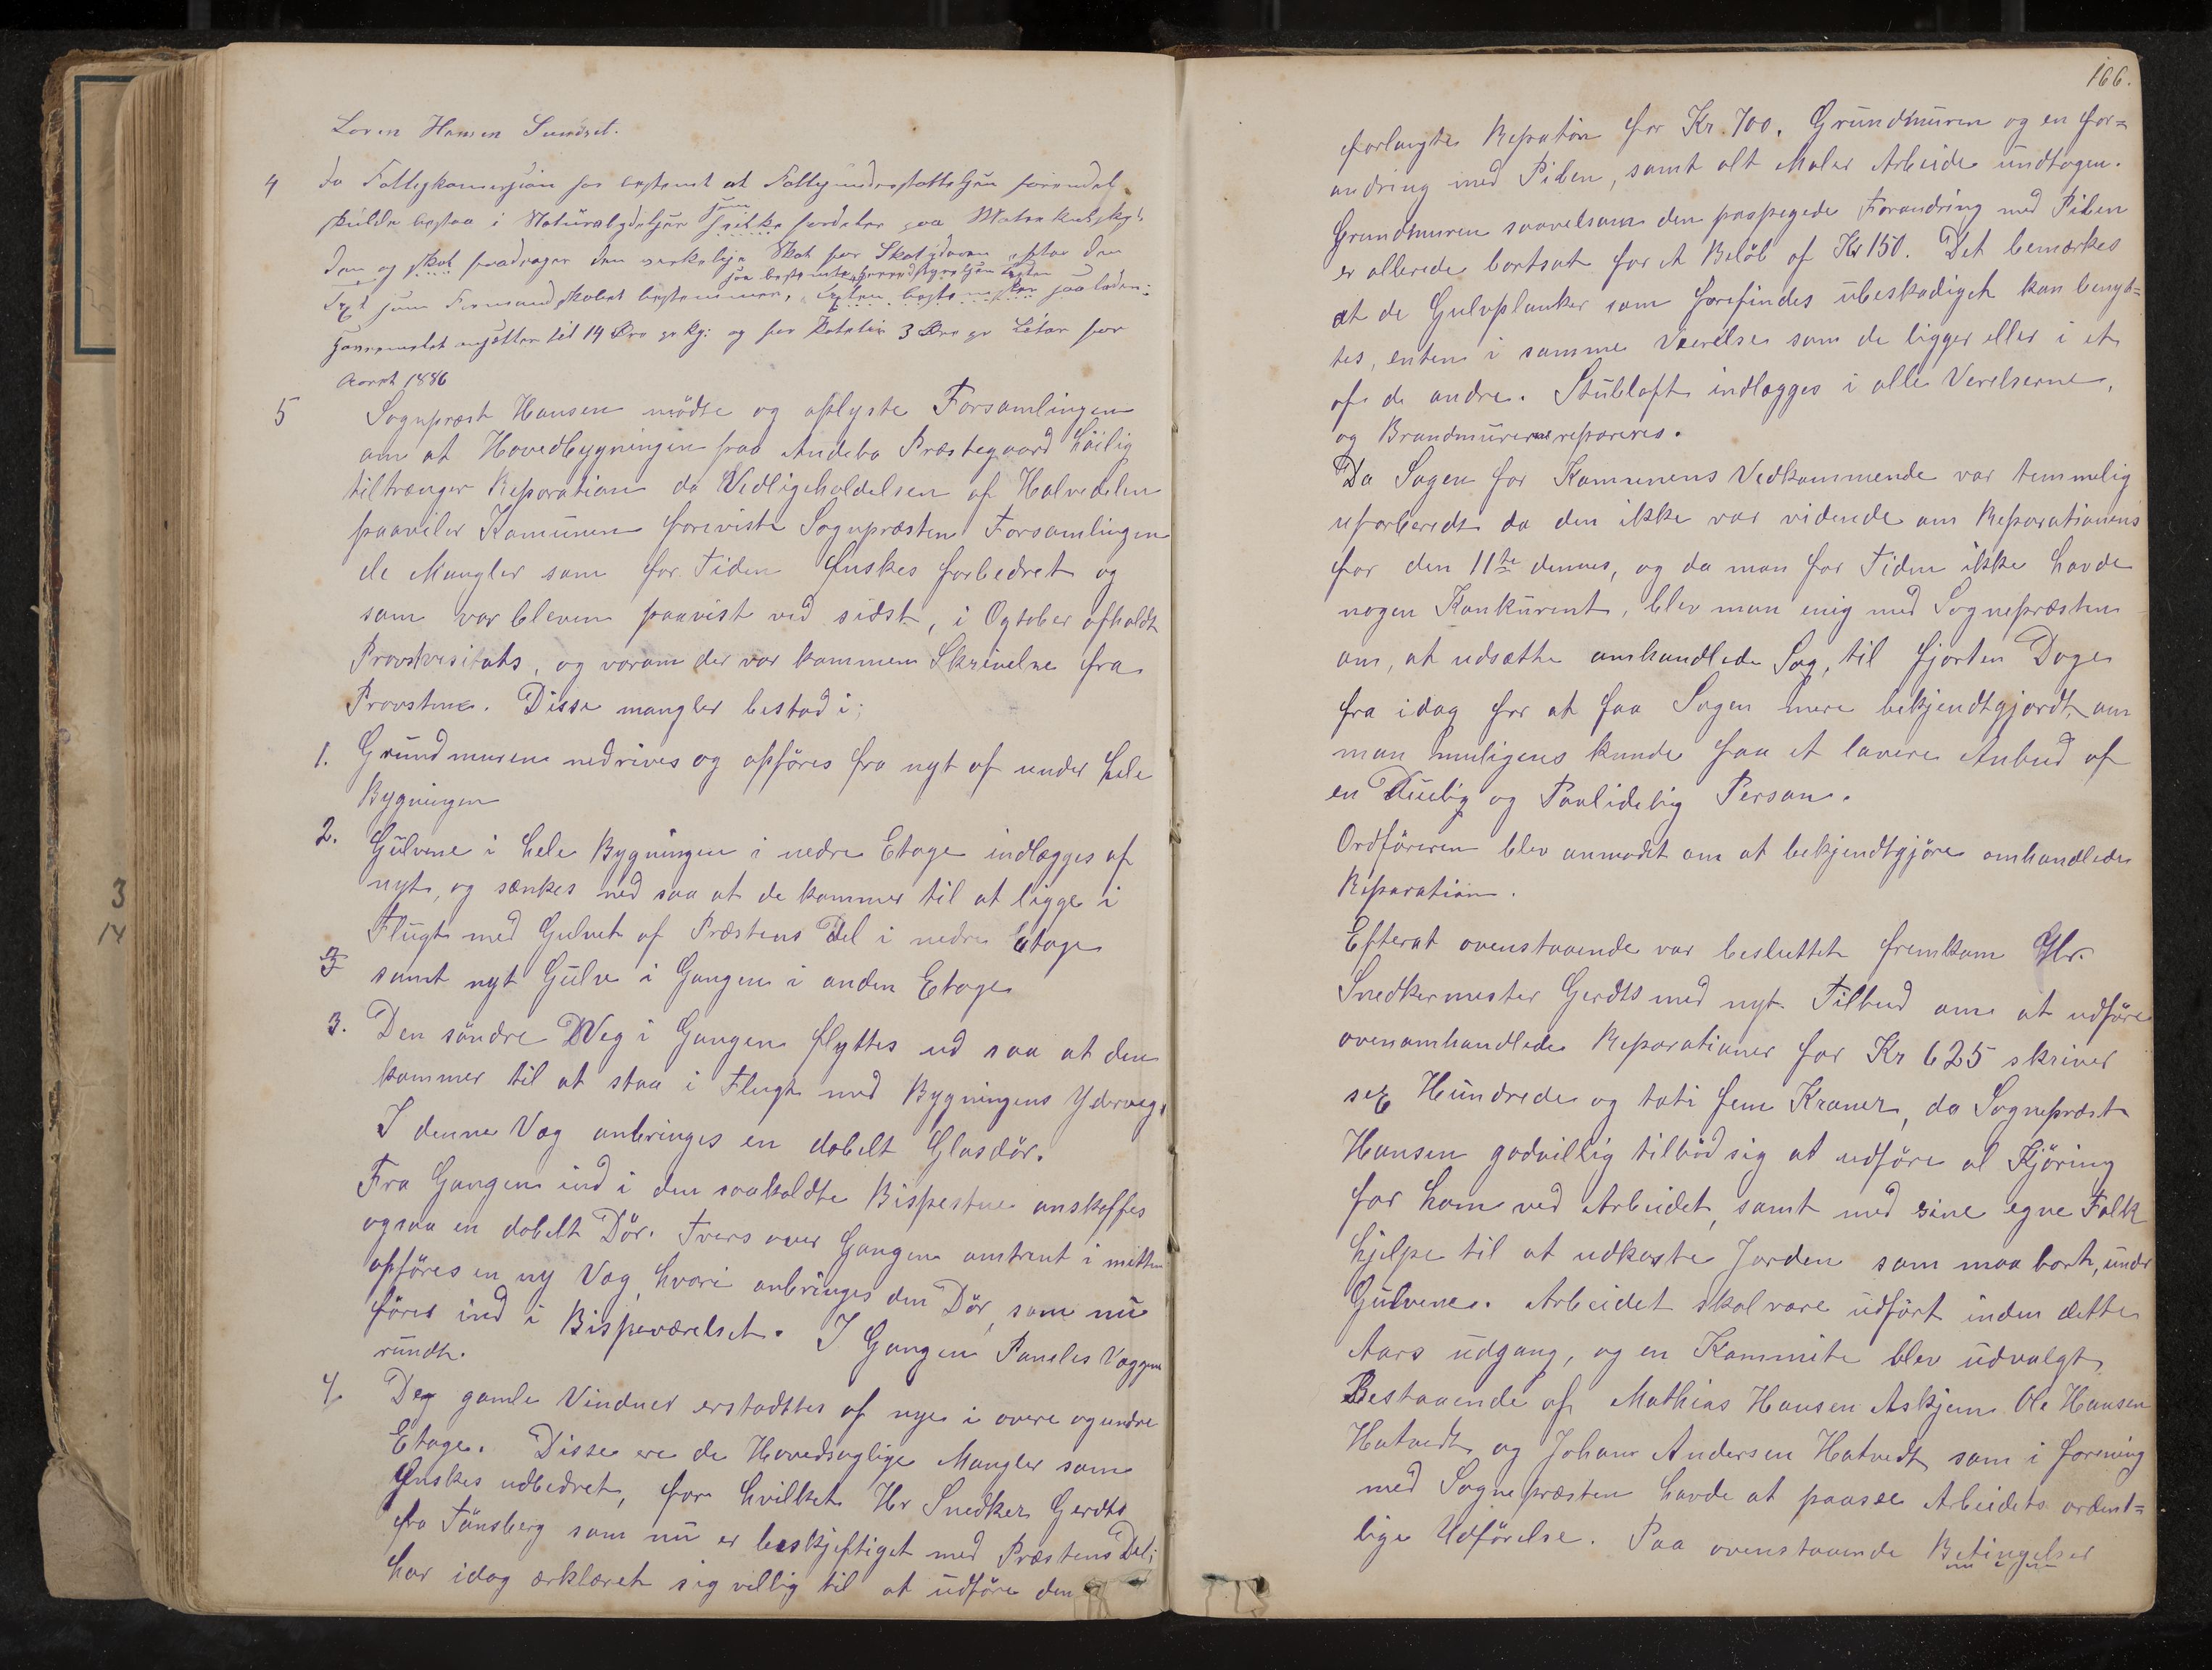 Soren Hansen
4 da Fattigkommisjion har bestemt at Fattigunderstøttelsen
skulde bestaa i Naturalydelser som ikke fordeles paa Matrikulskyl-
den og skal fradrages den Skat for Skatyderen efter den
Taxt som Formandskabet bestemmer,
til 14 Øre pr kg: og for Poteter 3 Øre pr Liter for
Aaret 1886
5 Sognpræst Hansen mödte og oplyste Forsamlingen
om at Hovedbygningen paa Andebo Præstegaard höilig
tiltrænger Reparation da Vedligeholdelsen af Halvedelen
paaviler Komunen foreviste Sognpræsten Forsamlingen
de Mangler som for Tiden Ønskes forbedret og
som var bleven paavist ved sidst, i Ogtober afholdt
Provstvisitats, og vorom der var kommen Skrivelse fra
Provsten. Disse mangler bestod i;
1. Grundmuren nedrives og opföres fra nyt af under hele
Bygningen
2. Gulvene i hele Bygningen i nedre Etage indlægges af
nyt, og sænkes ned saa at de kommer til at ligge i
Flugt med Gulvet af Præstens Del i nedre Etage
3 samt nyt Gulv i Gangen i anden Etage
3. Den söndre Veg i Gangen flyttes ud saa at den
kommer til at staa i Flugt med Bygningens Yderveg.
I denne Væg anbringes en dobelt Glasdör.
Fra Gangen ind i den saakaldte Bispestue anskaffes
ogsaa en dobelt Dör. Tvers over Gangen omtrent i mitten
opföres en ny Væg, hvori anbringes den Dör, som nu
förer ind i Bispeværelset. I Gangen Paneles Væggene
rundt.
4. De gamle Vinduer erstadttes af nye i overe og undre
Etage. Disse ere de Hovedsaglige Mangler som
Ønskes udbedret, for hvilket Hr Snedker Gerdts
fra Tönsberg som nu er beskjeftiget med Præstens Del;
har idag erklæret sig villig til at udföre den
166.
forlangte Repation for Kr. 700. Grundmuren og en for=
andring med Piben, samt alt Maler Arbeide undtagen.
Grundmuren saavelsom den paapegede Forandring med Piben
er allerede bortsat for et Belöb af Kr 150. Det bemærkes
at de Gulvplanker som forefindes ubeskadiget kan benyt=
tes, enten i samme Værelse som de ligger eller i et
af de andre. Stubloft indlægges i alle Værelserne,
og Brandmurene repareres.
Da Sagen for Kommunens Vedkommende var temmelig
uforberedt da den ikke var vidende om Reparationens
før den 11te dennes, og da man for Tiden ikke havde
nogen Konkurent, blev man enig med Sognepræsten
om, at udsætte omhandlede Sag, til fjorten Dage
fra idag for at faa Sagen mere bekjendtgjordt, om
man muligens kunde faa et lavere Anbud af
en Duelig og Paalidelig Person.
Ordföreren blev anmodet om at bekjendtgjöre omhandlede
Reparation.
Efterat ovenstaaende var besluttet fremkom Hr.
Snedkermester Gerdts med nyt Tilbud om at udföre
ovenomhandlede Reparationer for Kr 625 skriver
sex Hundrede og toti fem Kroner, da Sognepræst
Hansen godvillig tilböd sig at udföre al Kjöring
for ham ved Arbeidet, samt med sine egne Folk
hjelpe til at udkaste Jorden som maa bort, under
Gulvene. Arbeidet skal være udfört inden dette
Aars udgang, og en Kommite blev udvalgt,
Bestaaende af Mathias Hansen Askjem Ole Hansen
Hatvedt og Johan Andersen Hatvedt som i forening
med Sognepræsten havde at paasee Arbeidets ordent=
lige Udförelse. Paa ovenstaaende Betingelser